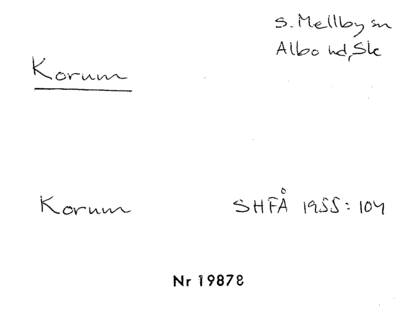 S. Mellby sn
Albo hd, Sk
Korum
Korum SHFÅ 1955: 104
Nr 19878